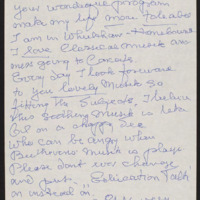 your wonderful program
make my life more tolerable
I am in Wheelchair + Housebound
I love Classical Music and
miss going to Concerts.
Every day I look forward
to your lovely Music so
fitting the Subjects, I believe
this Soothing Music is like
Oil on a stormy Sea
Who can be angry when
Beethovens Music is played
Please don't ever change
and put Education Talk
on instead of